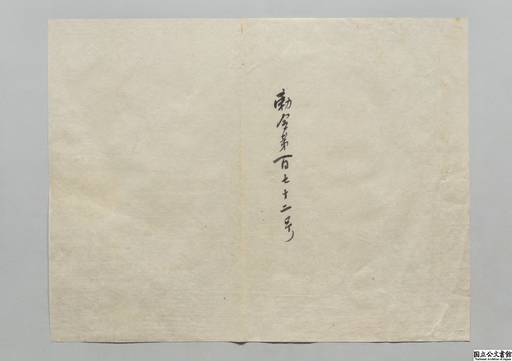 勅令第百七十二号
国立公文書館
National Archives of Japan